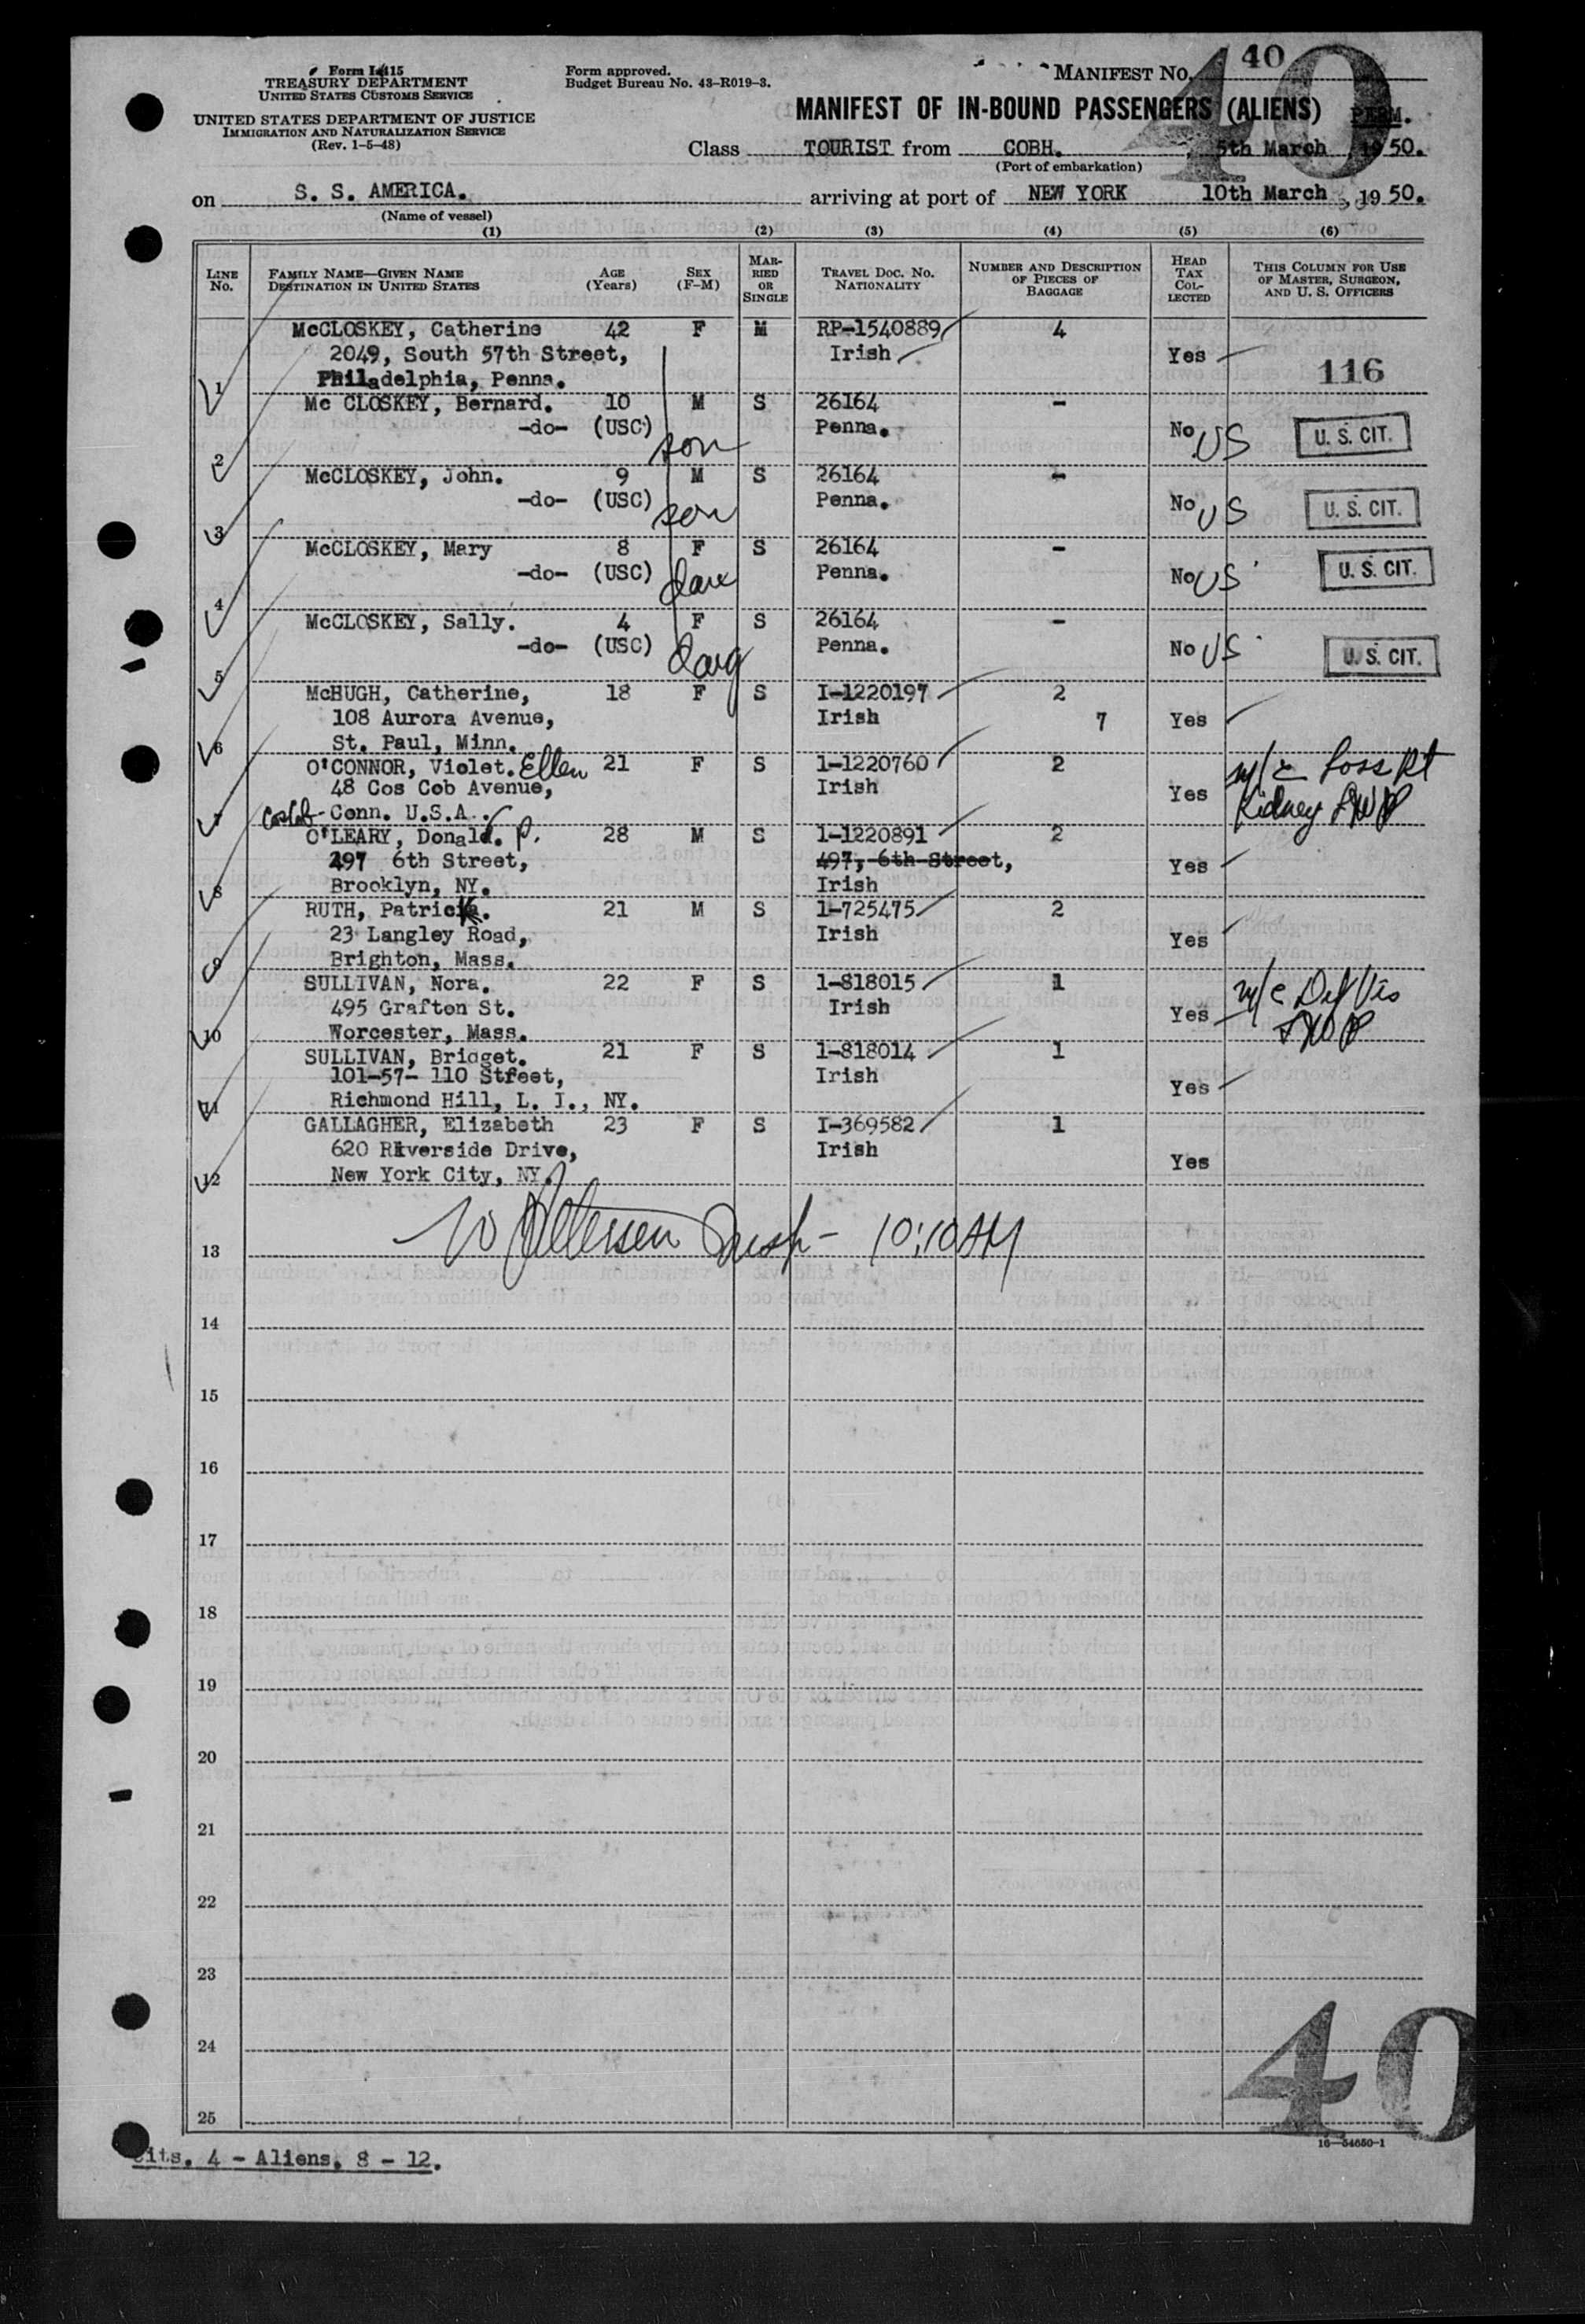 Form I-415
TREASURY DEPARTMENT
UNITED STATES CUSTOMS SERVICE
UNITED STATES DEPARTMENT OF JUSTICE
IMMIGRATION AND NATURALIZATION SERVICE
(Rev. 1-5-48)
Form approved.
Budget Bureau No. 43-R019-3.
MANIFEST No. 40
40
MANIFEST OF IN-BOUND PASSENGERS (ALIENS) PERM.
Class TOURIST from COBH. , 5th March , 1950.
(Port of embarkation)
on S. S. AMERICA. arriving at port of NEW YORK 10th March , 19 50.
(Name of vessel)
(1) (2) (3) (4) (5) (6)
LINE No. FAMILY NAME—GIVEN NAME DESTINATION IN UNITED STATES AGE (Years) SEX (F-M) MARRIED OR SINGLE TRAVEL DOC. NO. NATIONALITY NUMBER AND DESCRIPTION OF PIECES OF BAGGAGE HEAD TAX COLLECTED THIS COLUMN FOR USE OF MASTER, SURGEON, AND U. S. OFFICERS
McCLOSKEY, Catherine 42 F M RP-1540889 4
2049, South 57th Street, Irish Yes
1 Philadelphia, Penna. 116
Mc CLOSKEY, Bernard. 10 M S 26164 -
-do- (USC) son Penna. No US U. S. CIT.
2
McCLOSKEY, John. 9 M S 26164 -
-do- (USC) son Penna. No US U. S. CIT.
3
McCLOSKEY, Mary 8 F S 26164 -
-do- (USC) Penna. No US U. S. CIT.
4
McCLOSKEY, Sally. 4 F S 26164 -
-do- (USC) daug Penna. No US U. S. CIT.
5
McHUGH, Catherine, 18 F S I-1220197 2
108 Aurora Avenue, Irish 7 Yes
6 St. Paul, Minn.
O'CONNOR, Violet. Ellen 21 F S 1-1220760 2 m/c Loss Rt
48 Cos Cob Avenue, Irish Yes Kidney
7 Cos Cob Conn. U.S.A.
O'LEARY, Donald. P. 28 M S 1-1220891 2
497 6th Street, 497, 6th Street, Yes
8 Brooklyn, NY. Irish
RUTH, Patrick. 21 M S 1-725475 2
23 Langley Road, Irish Yes
9 Brighton, Mass.
SULLIVAN, Nora. 22 F S 1-818015 1 m/c Def Vis
495 Grafton St. Irish Yes
10 Worcester, Mass.
SULLIVAN, Bridget. 21 F S 1-818014 1
101-57- 110 Street, Irish Yes
11 Richmond Hill, L. I., NY.
GALLAGHER, Elizabeth 23 F S I-369582 1
620 Riverside Drive, Irish Yes
12 New York City, NY.
Insp- 10:10AM
13
14
15
16
17
18
19
20
21
22
23
24
25
40
16—54650-1
Cits. 4 - Aliens, 8 - 12.